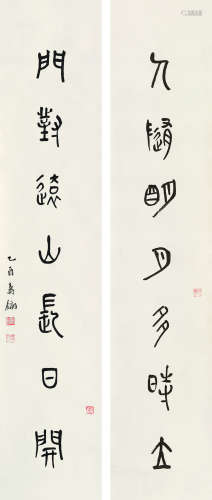 人隨明月多時立
門對遠山長日開
乙酉